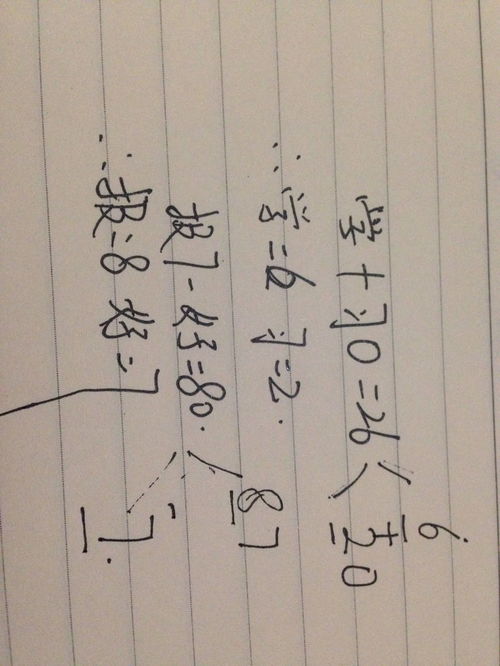 6
学+习0=26
+20
∴学=6 习=2.
87
报7-好=80.
-7.
∴报=8 好=7